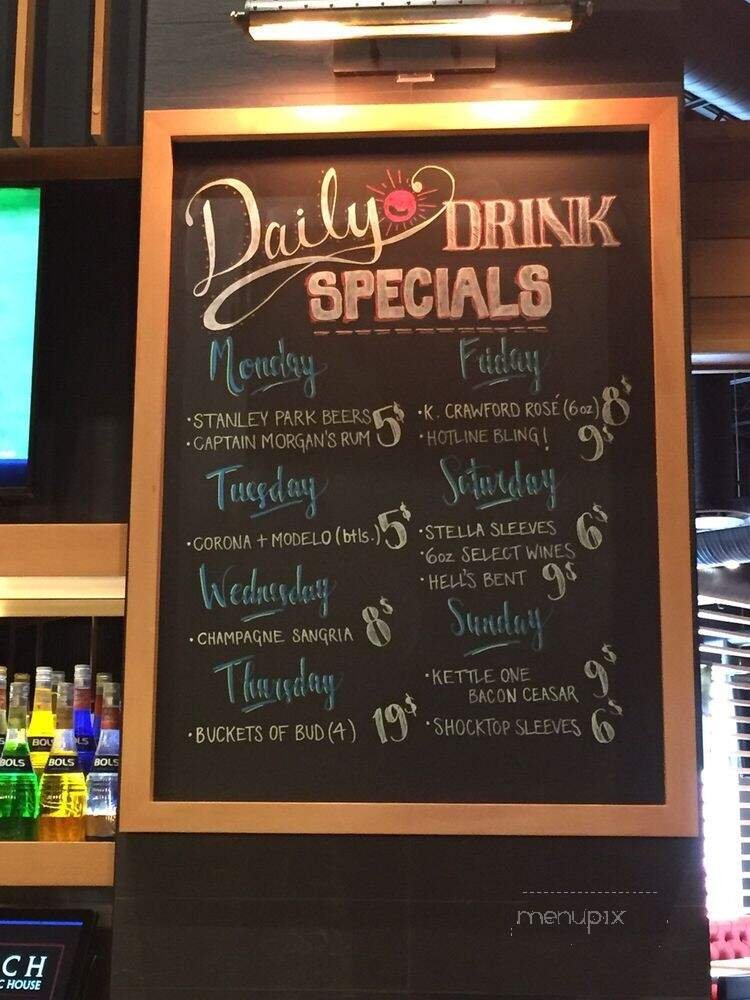 Daily DRINK
SPECIALS
Monday
• STANLEY PARK BEERS 5$
• CAPTAIN MORGAN'S RUM
Tuesday
• CORONA + MODELO (btls.) 5$
Wednesday
• CHAMPAGNE SANGRIA 8$
Thursday
• BUCKETS OF BUD (4) 19$
Friday
• K. CRAWFORD ROSÉ (6oz) 8$
• HOTLINE BLING! 9$
Saturday
• STELLA SLEEVES 6$
• 6oz SELECT WINES
• HELL'S BENT 9$
Sunday
• KETTLE ONE
BACON CEASAR 9$
• SHOCKTOP SLEEVES 6$
BOLS
BOLS
BOLS
BOLS
BOLS
CH
C HOUSE
menupix